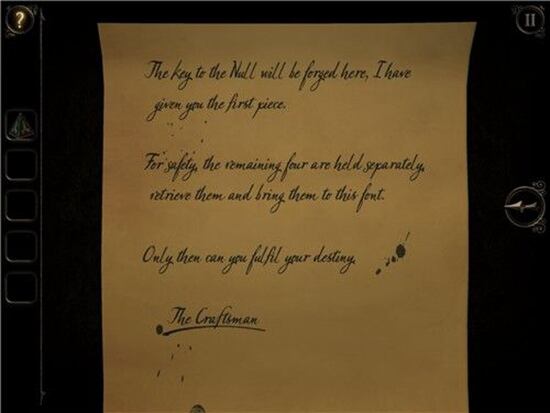 ?
The key to the Null will be forged here, I have
given you the first piece.
For safety, the remaining four are held separately,
retrieve them and bring them to this font.
Only then can you fulfil your destiny.
The Craftsman